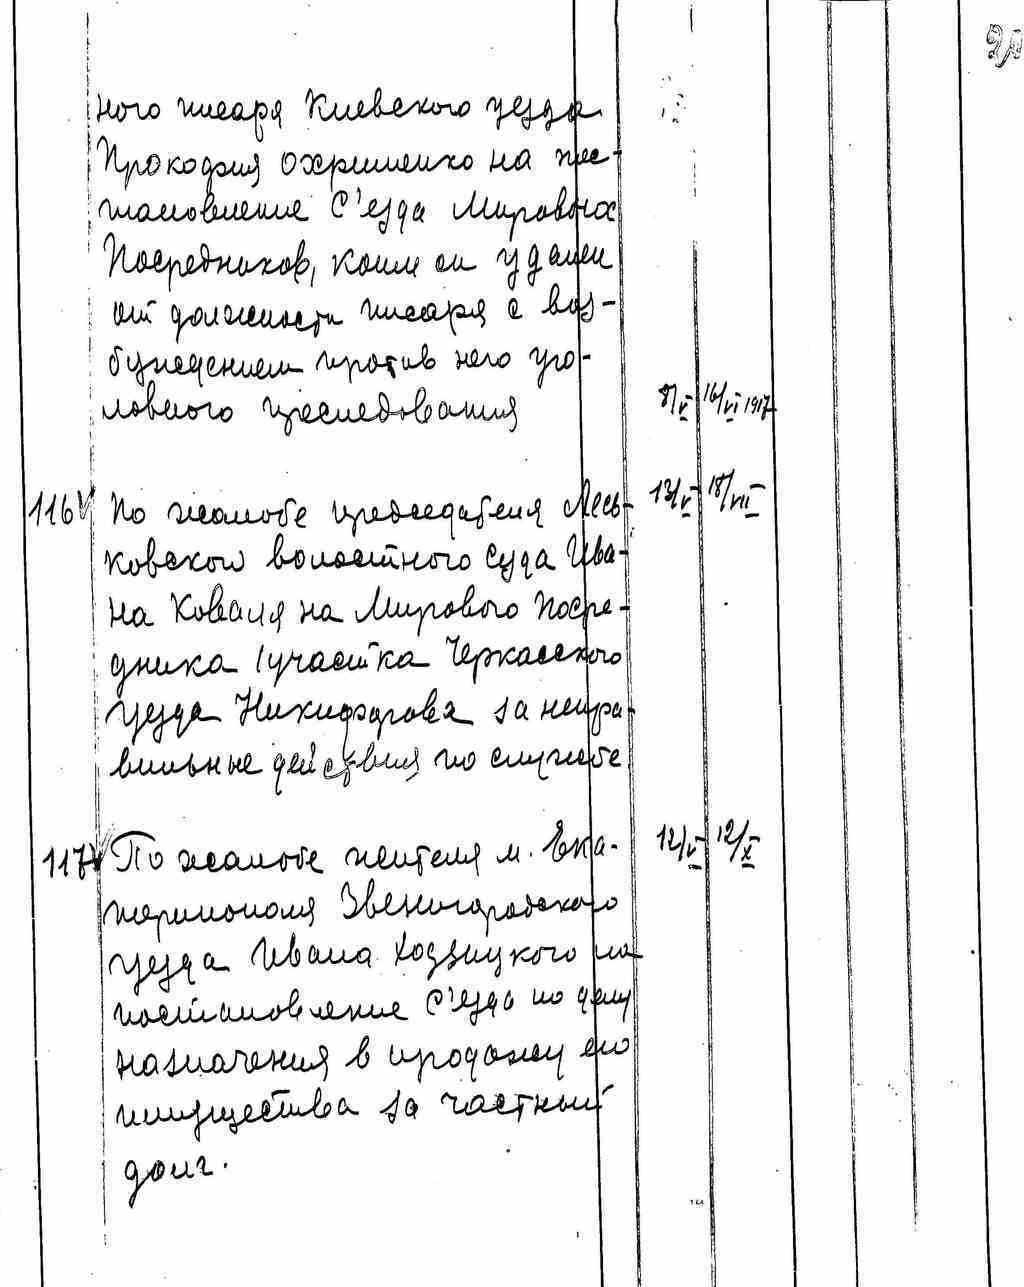 ного писаря Киевского уезда
Прокофия Охрименко на пос-
тановление С'езда Мировых
Посредников, коим он удален
от должности писаря с воз-
буждением против него уго-
ловного преследования 8/V 16/VI 1917
116 По жалобе председателя Лесь- 13/V 18/VII
ковского волостного суда Ива-
на Коваля на Мирового Посре-
дника 1 участка Черкасского
уезда Никифорова за непра-
вильные действия по службе
117 По жалобе жителя м. Ека- 12/V 12/X
теринополя Звенигородского
уезда Ивана Ходзицкого на
постановление С'езда по делу
назначения в продажу его
имущества за частный
долг.